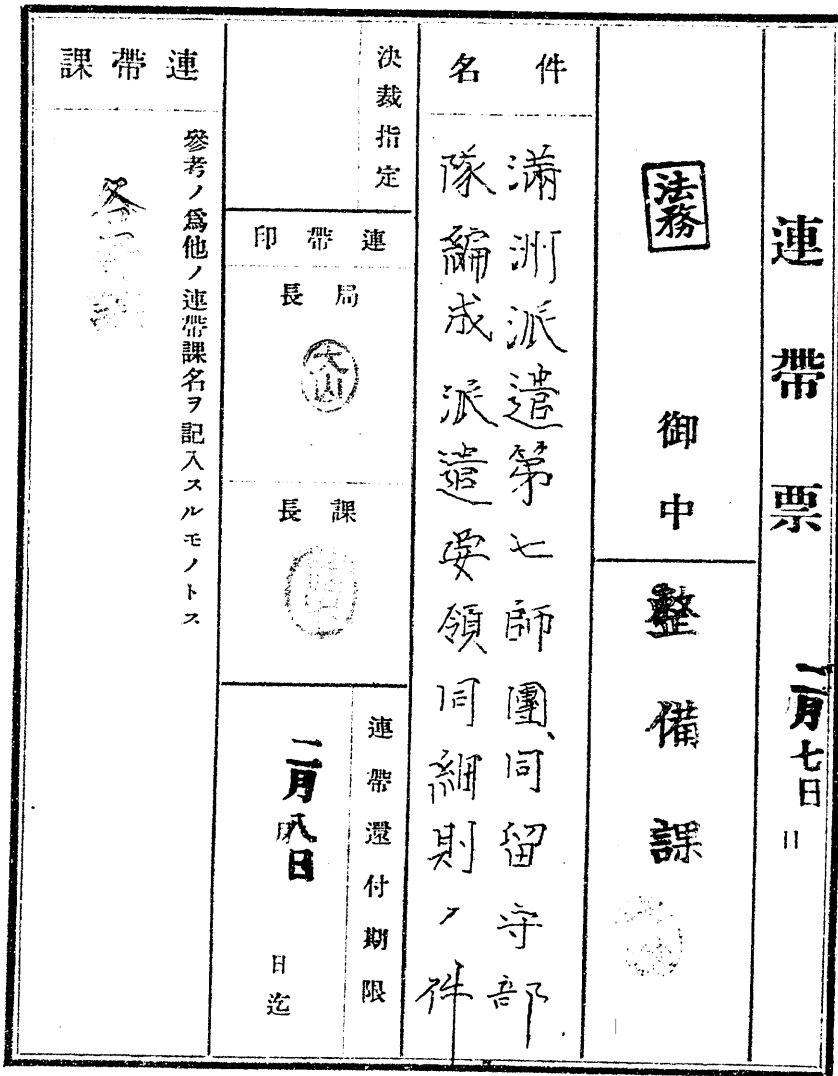 連帶票
二月七日
日
法務
御中
整備課
件名
滿洲派遣第七師團、同留守部
隊編成派遣要領同細則ノ件
決裁指定
連帶印
局長
大山
課長
連帶還付期限
二月八日
日迄
連帶課
參考ノ爲他ノ連帶課名ヲ記入スルモノトス